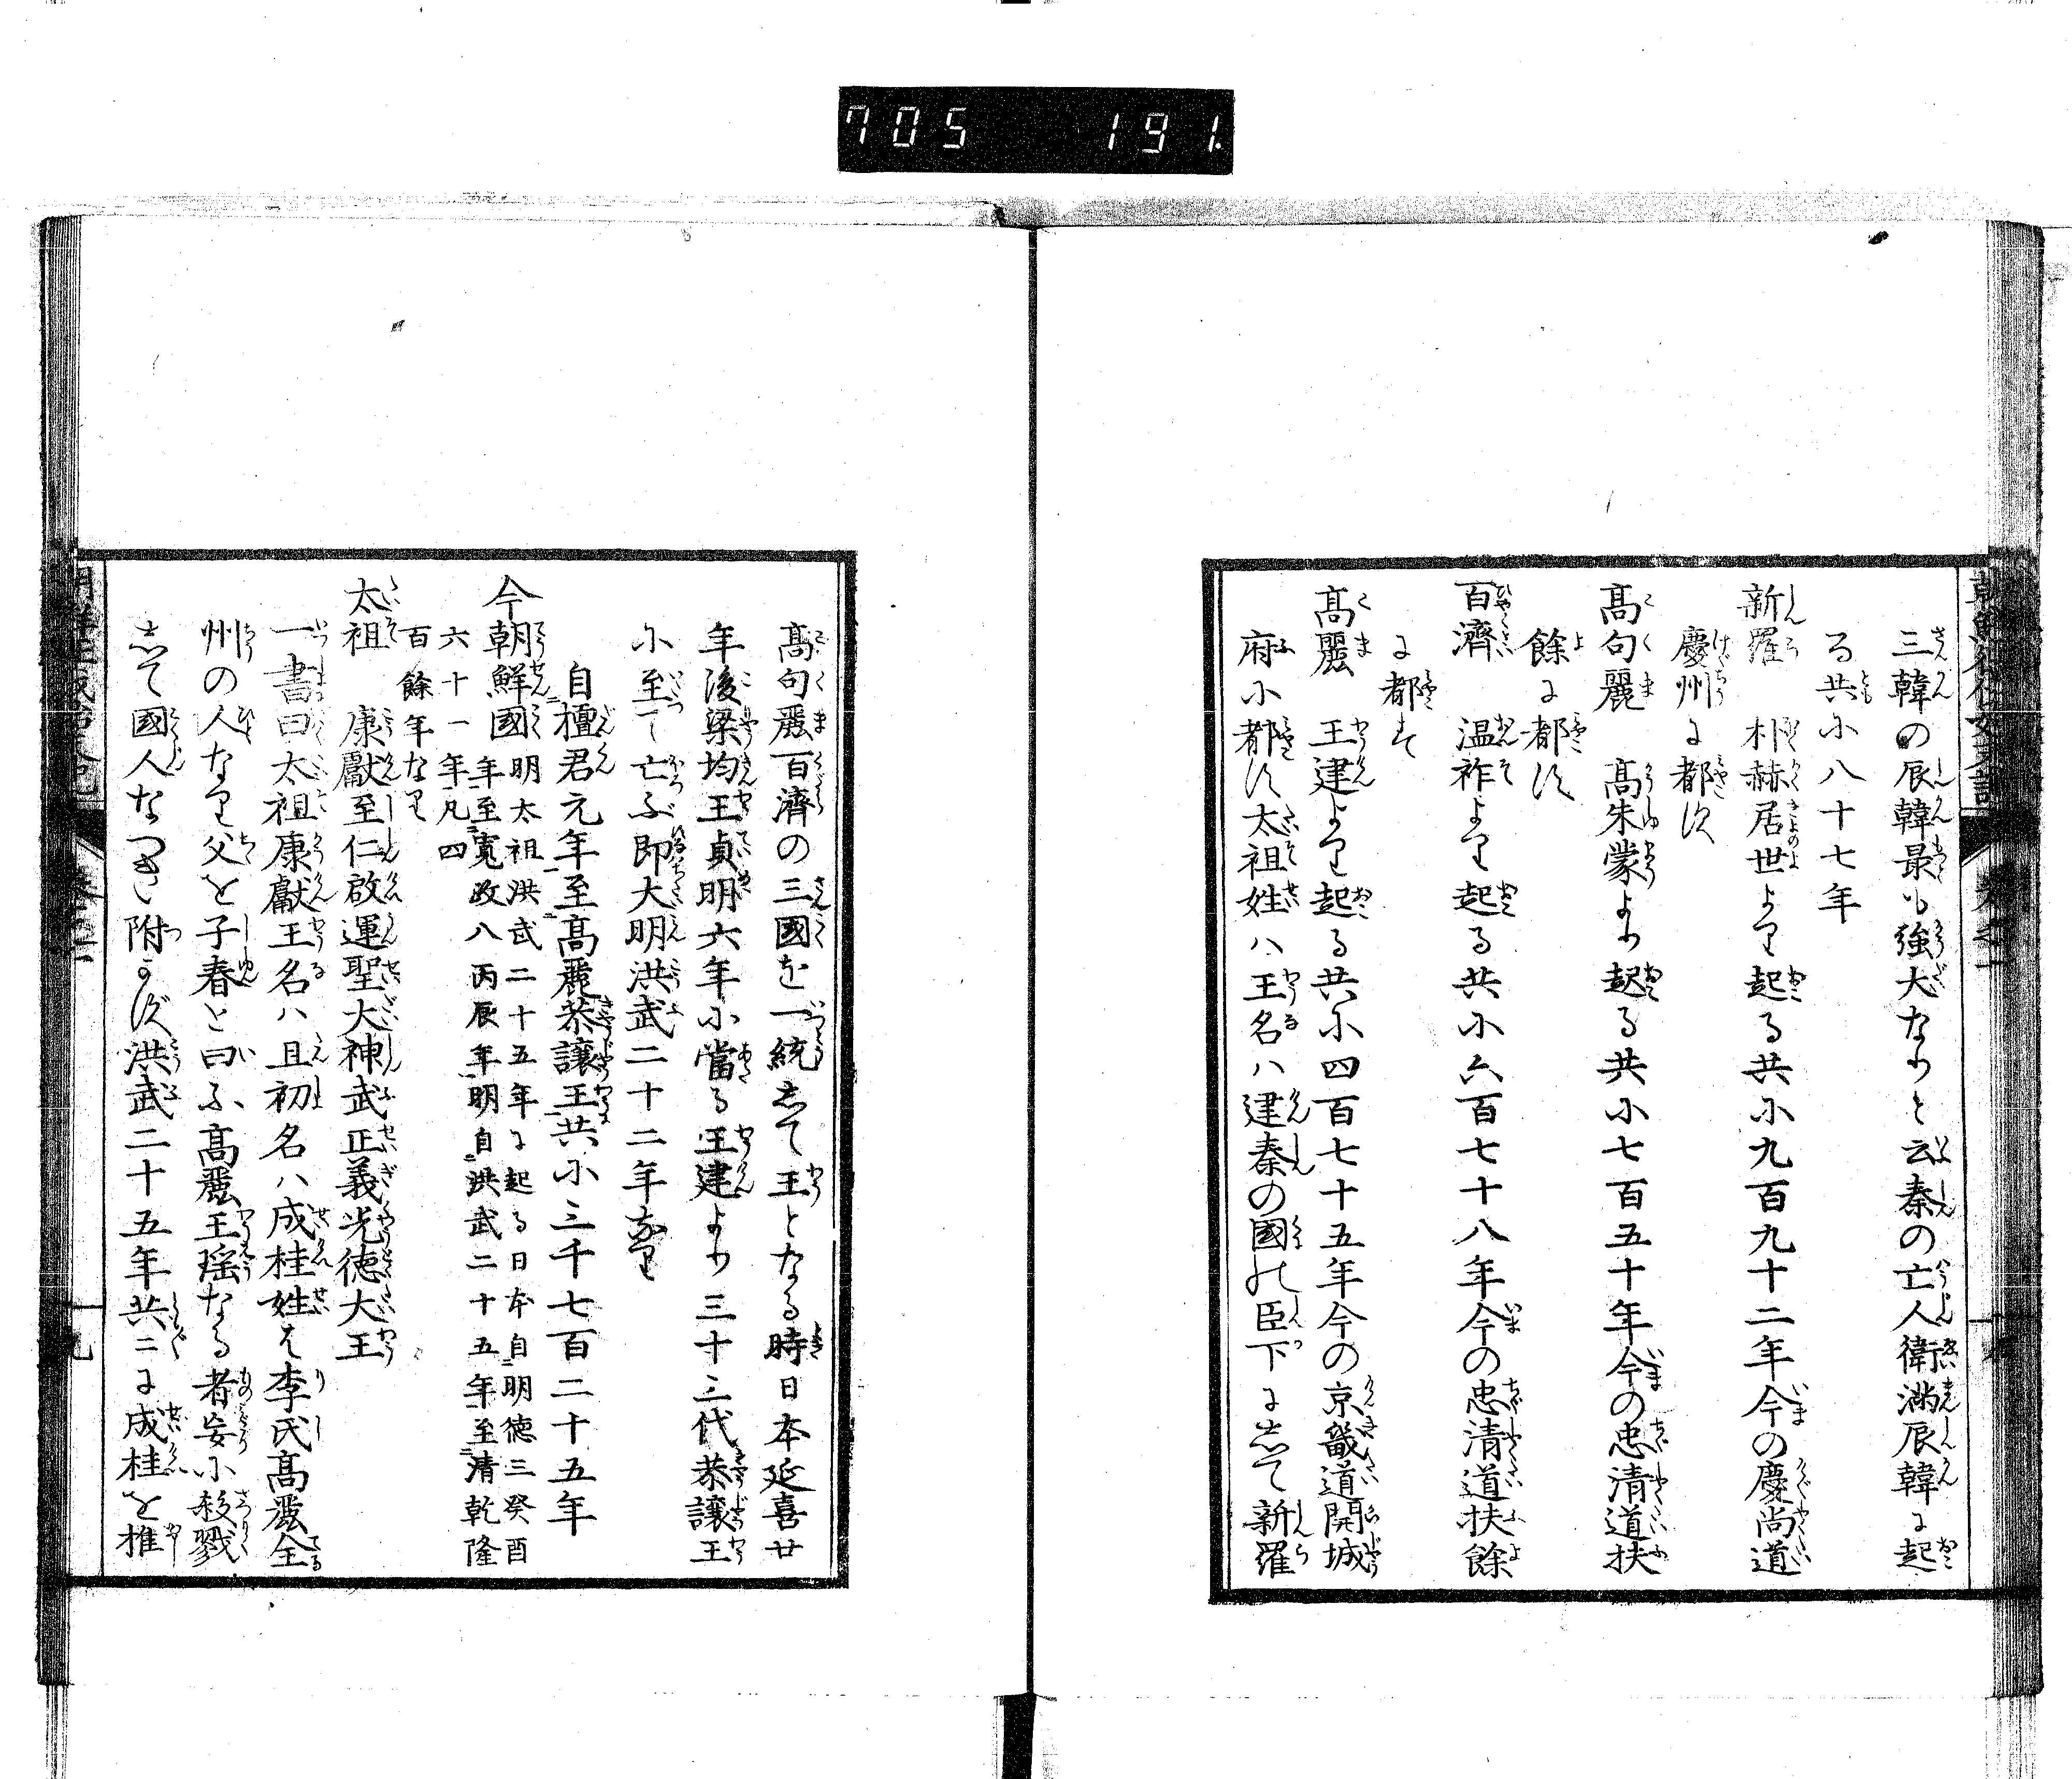 705 191.
三韓の辰韓最も強大なりと云秦の亡人衛満辰韓に起
る共に八十七年
新羅 朴赫居世より起る共に九百九十二年今の慶尚道
慶州に都す
高句麗 高朱蒙より起る共に七百五十年今の忠清道扶
餘に都す
百濟 温祚より起る共に六百七十八年今の忠清道扶餘
に都す
高麗 王建より起る共に四百七十五年今の京畿道開城
府に都す太祖姓ハ王名ハ建秦の國の臣下にして新羅
高句麗百濟の三國を一統して王となる時日本延喜廿
年後梁均王貞明六年に當る王建より三十三代恭譲王
に至て亡ぶ即大明洪武二十二年なり
自檀君元年至高麗恭譲王共に三千七百二十五年
今朝鮮國 明太祖洪武二十五年に起る日本自明徳三癸酉
年至寛政八丙辰年明自洪武二十五年至清乾隆
六十一年凡四
百餘年なり
太祖 康獻至仁啟運聖大神武正義光徳大王
一書曰太祖康獻王名ハ旦初名ハ成桂姓は李氏高麗全
州の人なり父を子春と曰ふ高麗王瑶なる者妄に殺戮
して國人なつき附かず洪武二十五年共に成桂を推